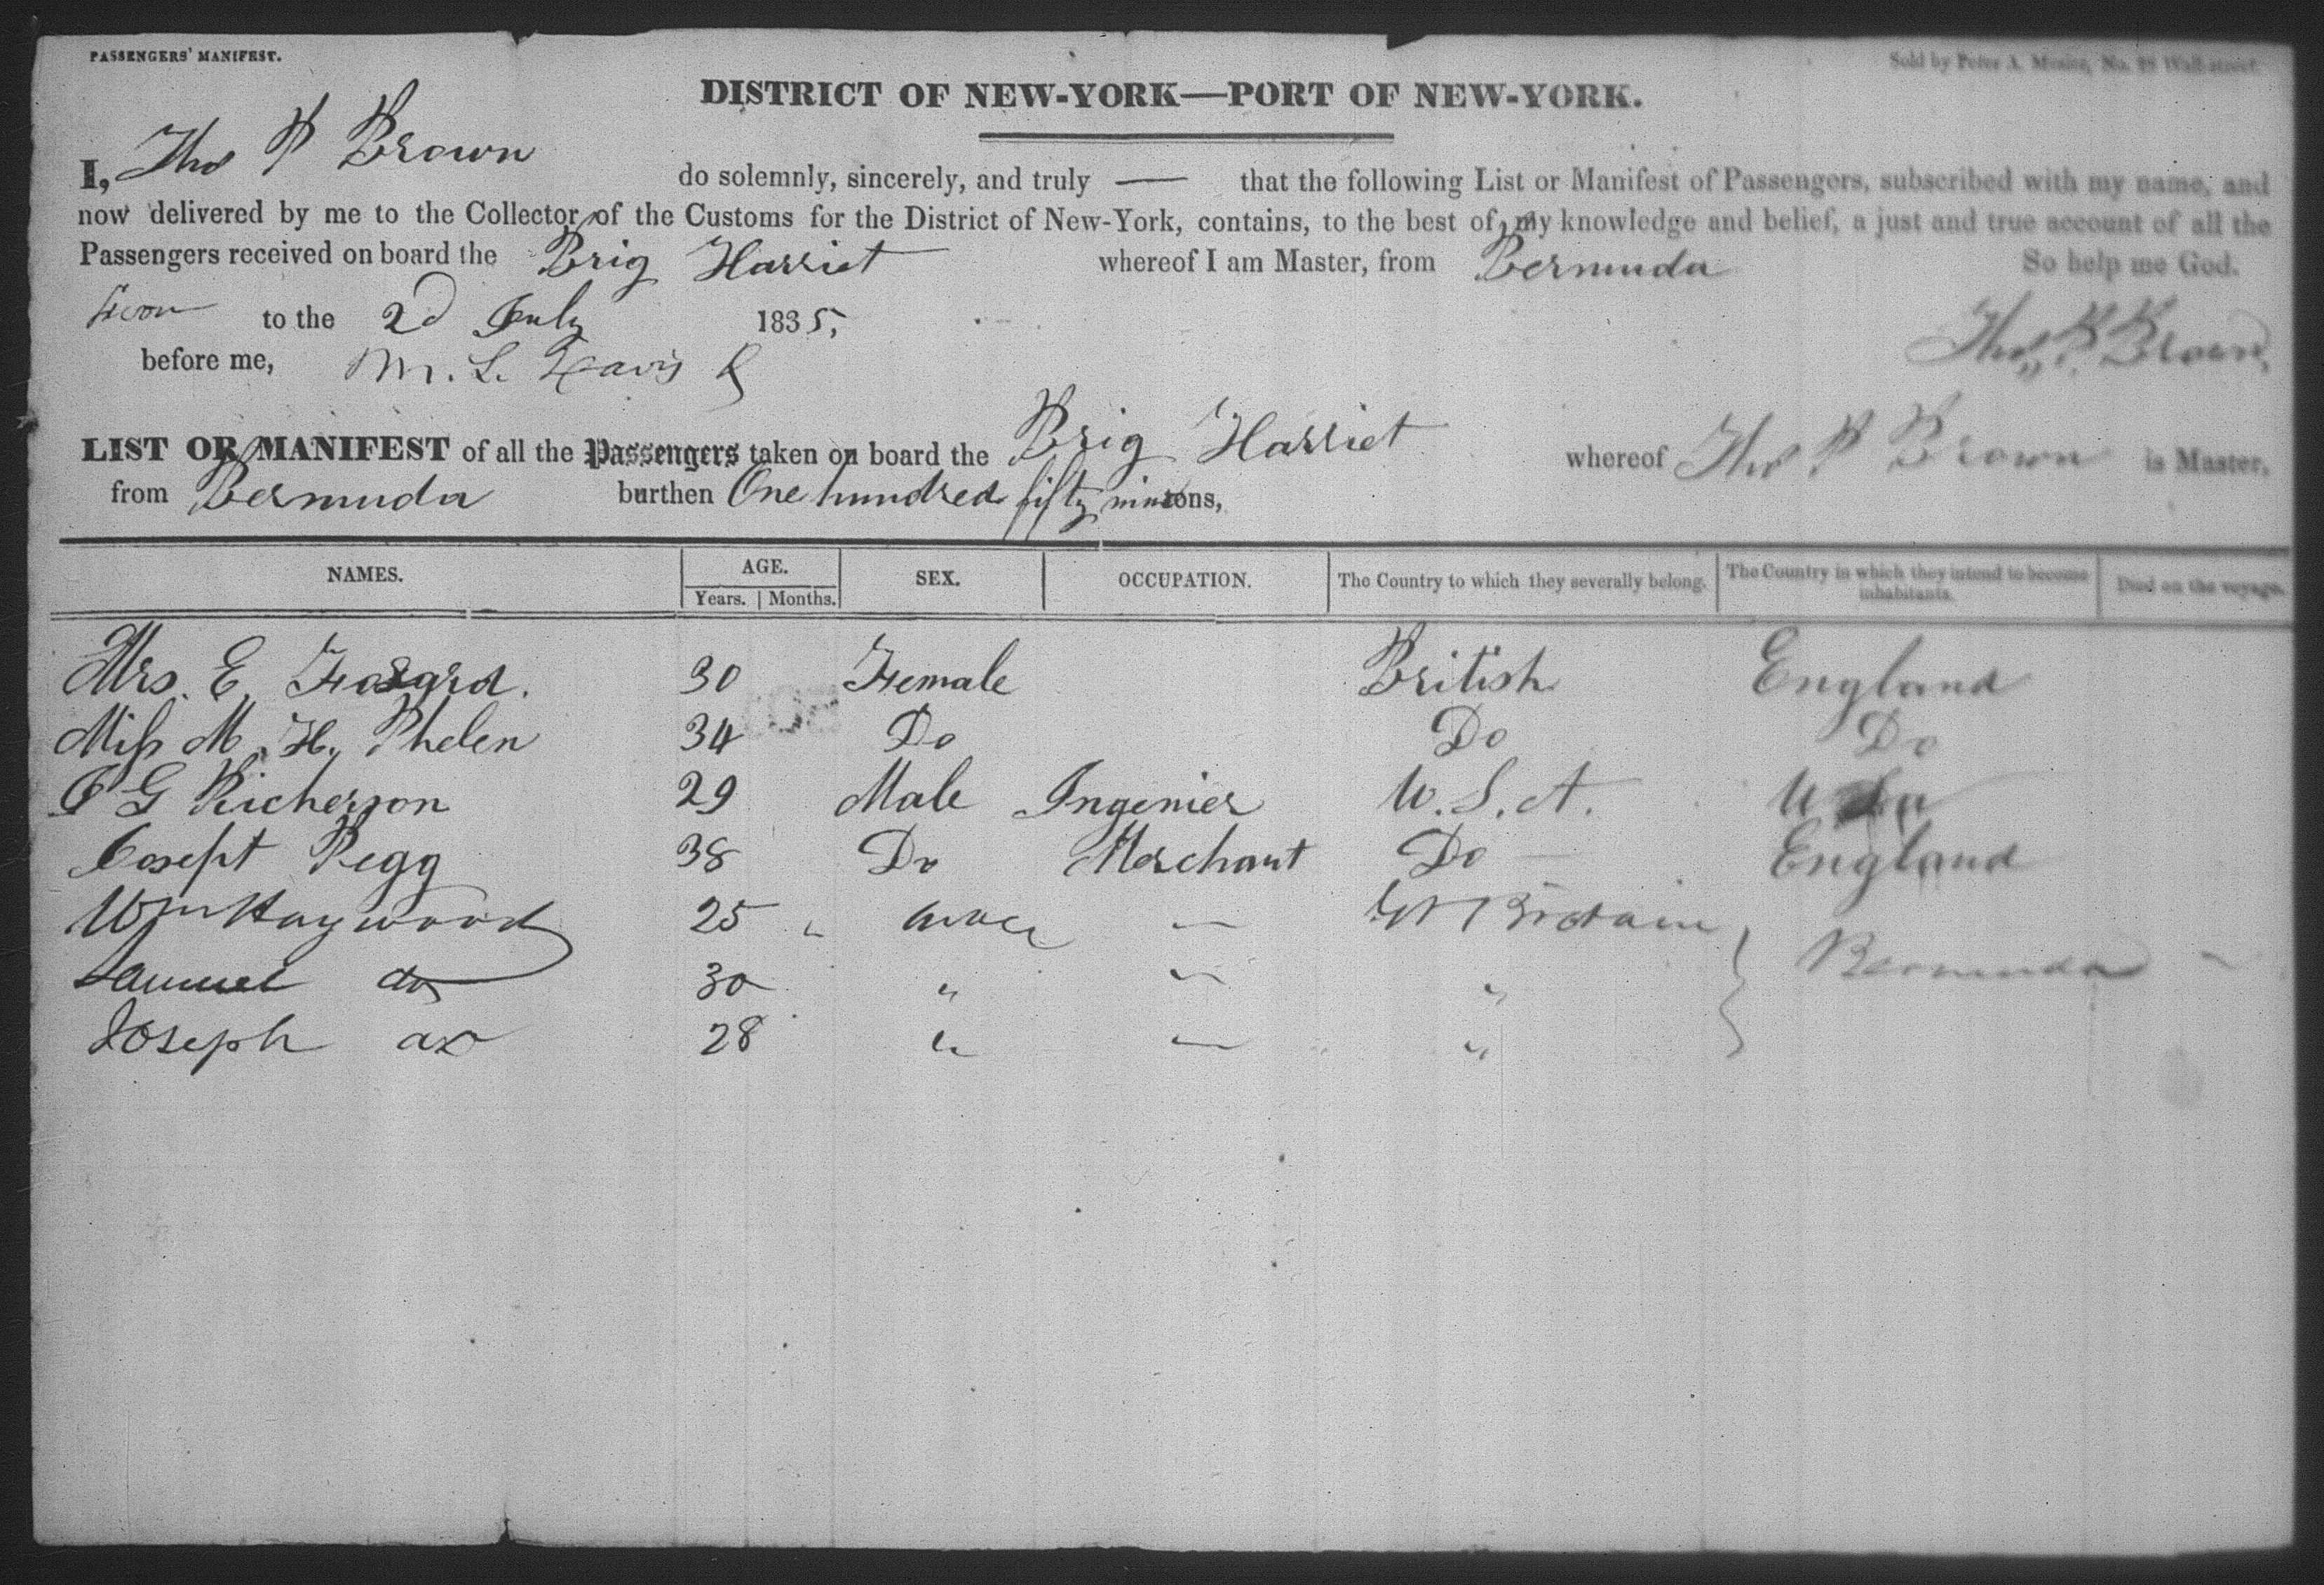 PASSENGERS' MANIFEST.
Sold by Peter A. Mesier, No. 28 Wall-street.
DISTRICT OF NEW-YORK—PORT OF NEW-YORK.
I, Thos P Brown do solemnly, sincerely, and truly — that the following List or Manifest of Passengers, subscribed with my name, and
now delivered by me to the Collector of the Customs for the District of New-York, contains, to the best of my knowledge and belief, a just and true account of all the
Passengers received on board the Brig Harriet whereof I am Master, from Bermuda So help me God.
Sworn to the 2d July 1835,
Thos,, P. Brown,
before me, M. L. Davis
LIST OR MANIFEST of all the Passengers taken on board the Brig Harriet whereof Thos P Brown is Master,
from Bermuda burthen One hundred fifty nine tons,
NAMES. AGE. SEX. OCCUPATION. The Country to which they severally belong. The Country in which they intend to become inhabitants. Died on the voyage.
Years. Months.
Mrs. E. 30 Female British England
Miss M. H. Phelen 34 Do Do Do
J G Richerson 29 Male Ingenier U.S.A. U S a
Josept Pegg 38 Do Merchant Do — England
Wm Haywood 25 " male — Gt Britain
Bermuda —
Samuel do 30 " — "
Joseph do 28 " — "